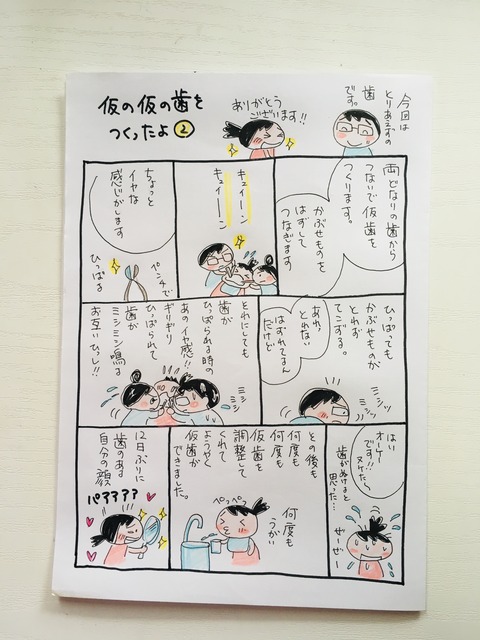 仮の仮の歯を
つくったよ②
今回は
とりあえずの
歯
です。
ありがとう
ございます!!
両どなりの歯から
つないで仮歯を
つくります。
かぶせものを
はずして
つなぎます
キュイーン
キュイーン
ちょっと
イヤな
感じがします
ペンチで
ひっぱる
ひっぱっても
かぶせものが
とれず
てこずる。
あれ、
とれない
はずれてるん
だけど
ミシッ
ミシッ
とれにしても
歯が
ひっぱられる時の
あのイヤ感!!
ギリギリ
ひっぱられて
歯が
ミシミシ鳴る
お互いひっし!!
はい
オーケー
です!!
ヌケた、
歯がぬけると
思った…
ぜーぜー
その後も
何度も
何度も
仮歯を
調整して
くれて
ようやく
仮歯が
できました。
何度も
うがい
ぺっぺっ
12日ぶりに
歯のある
自分の顔
パアアアア